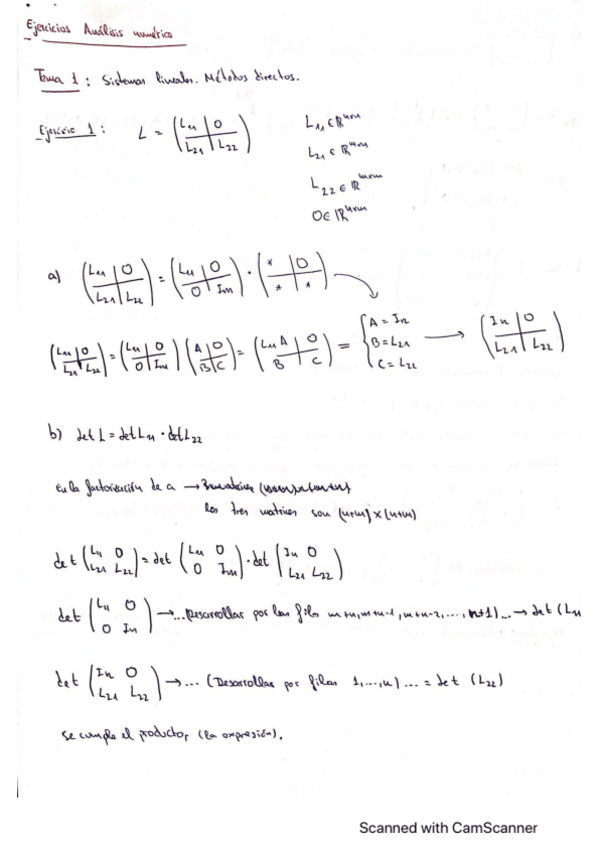 Ejercicios Análisis numérico
Tema 1: Sistemas lineales. Métodos directos.
Ejercicio 1: L = (L₁₁ | 0 / L₂₁ | L₂₂) L₁₁ ∈ ℝⁿˣⁿ
L₂₁ ∈ ℝᵐˣⁿ
L₂₂ ∈ ℝᵐˣᵐ
0 ∈ ℝⁿˣᵐ
a) (L₁₁ | 0 / L₂₁ | L₂₂) = (L₁₁ | 0 / 0 | Im) · (* | 0 / * | *)
(L₁₁ | 0 / L₂₁ | L₂₂) = (L₁₁ | 0 / 0 | Im) (A | 0 / B | C) = (L₁₁A | 0 / B | C) = { A = In / B = L₂₁ / C = L₂₂ → (In | 0 / L₂₁ | L₂₂)
b) det L = det L₁₁ · det L₂₂
En la factorización de a →
las tres matrices son (n+m)x(n+m)
det (L₁₁ 0 / L₂₁ L₂₂) = det (L₁₁ 0 / 0 Im) · det (In 0 / L₂₁ L₂₂)
det (L₁₁ 0 / 0 In) → ... Desarrollar por las filas m+n, m+n-1, m+n-2, ..., n+1) ... → det (L₁₁
det (In 0 / L₂₁ L₂₂) → ... (Desarrollar por filas 1, ..., n) ... = det (L₂₂)
Se cumple el producto, (la expresión).
Scanned with CamScanner